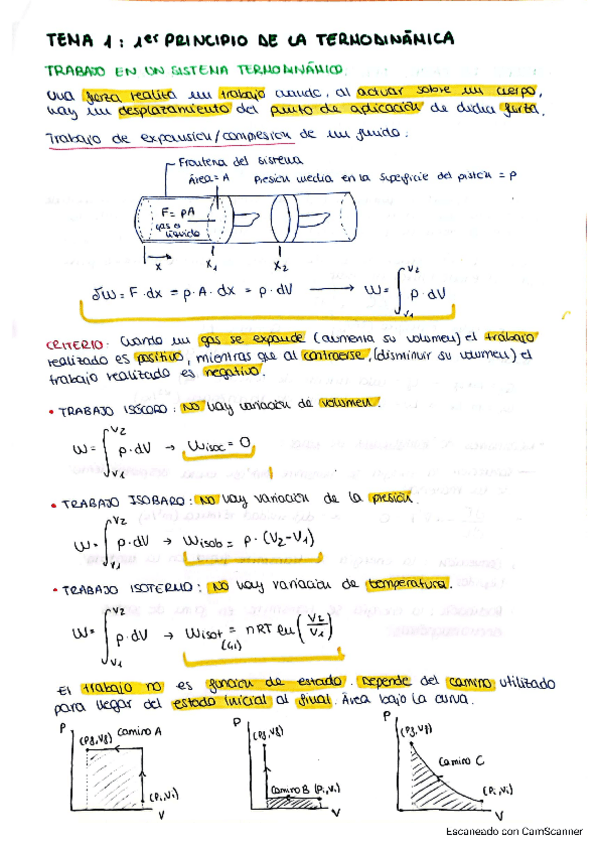 TEMA 1: 1er PRINCIPIO DE LA TERMODINÁMICA
TRABAJO EN UN SISTEMA TERMODINÁMICO.
Una fuerza realiza un trabajo cuando, al actuar sobre un cuerpo,
hay un desplazamiento del punto de aplicación de dicha fuerza.
Trabajo de expansión/compresión de un fluido:
Frontera del sistema
Área = A Presión media en la superficie del pistón = P
F = pA
gas o líquido
x x1 x2
δW = F · dx = p · A · dx = p · dV → W = ∫V1V2 p · dV
CRITERIO: Cuando un gas se expande (aumenta su volumen) el trabajo
realizado es positivo, mientras que al contraerse, (disminuir su volumen) el
trabajo realizado es negativo.
• TRABAJO ISÓCORO: NO hay variación de volumen.
W = ∫V2 p · dV → Wisoc = 0
• TRABAJO ISOBARO: NO hay variación de la presión.
W = ∫V1V2 p · dV → Wisob = p · (V2 - V1)
• TRABAJO ISOTERMO: NO hay variación de temperatura.
W = ∫V1V2 p · dV → Wisot = nRT ln (V2/V1)
(G.i)
El trabajo no es función de estado. Depende del camino utilizado
para llegar del estado inicial al final. Área bajo la curva.
P (Pf, Vf) camino A (Pi, Vi) V
P (Pf, Vf) camino B (Pi, Vi) V
P (Pf, Vf) camino C (Pi, Vi) V
Escaneado con CamScanner